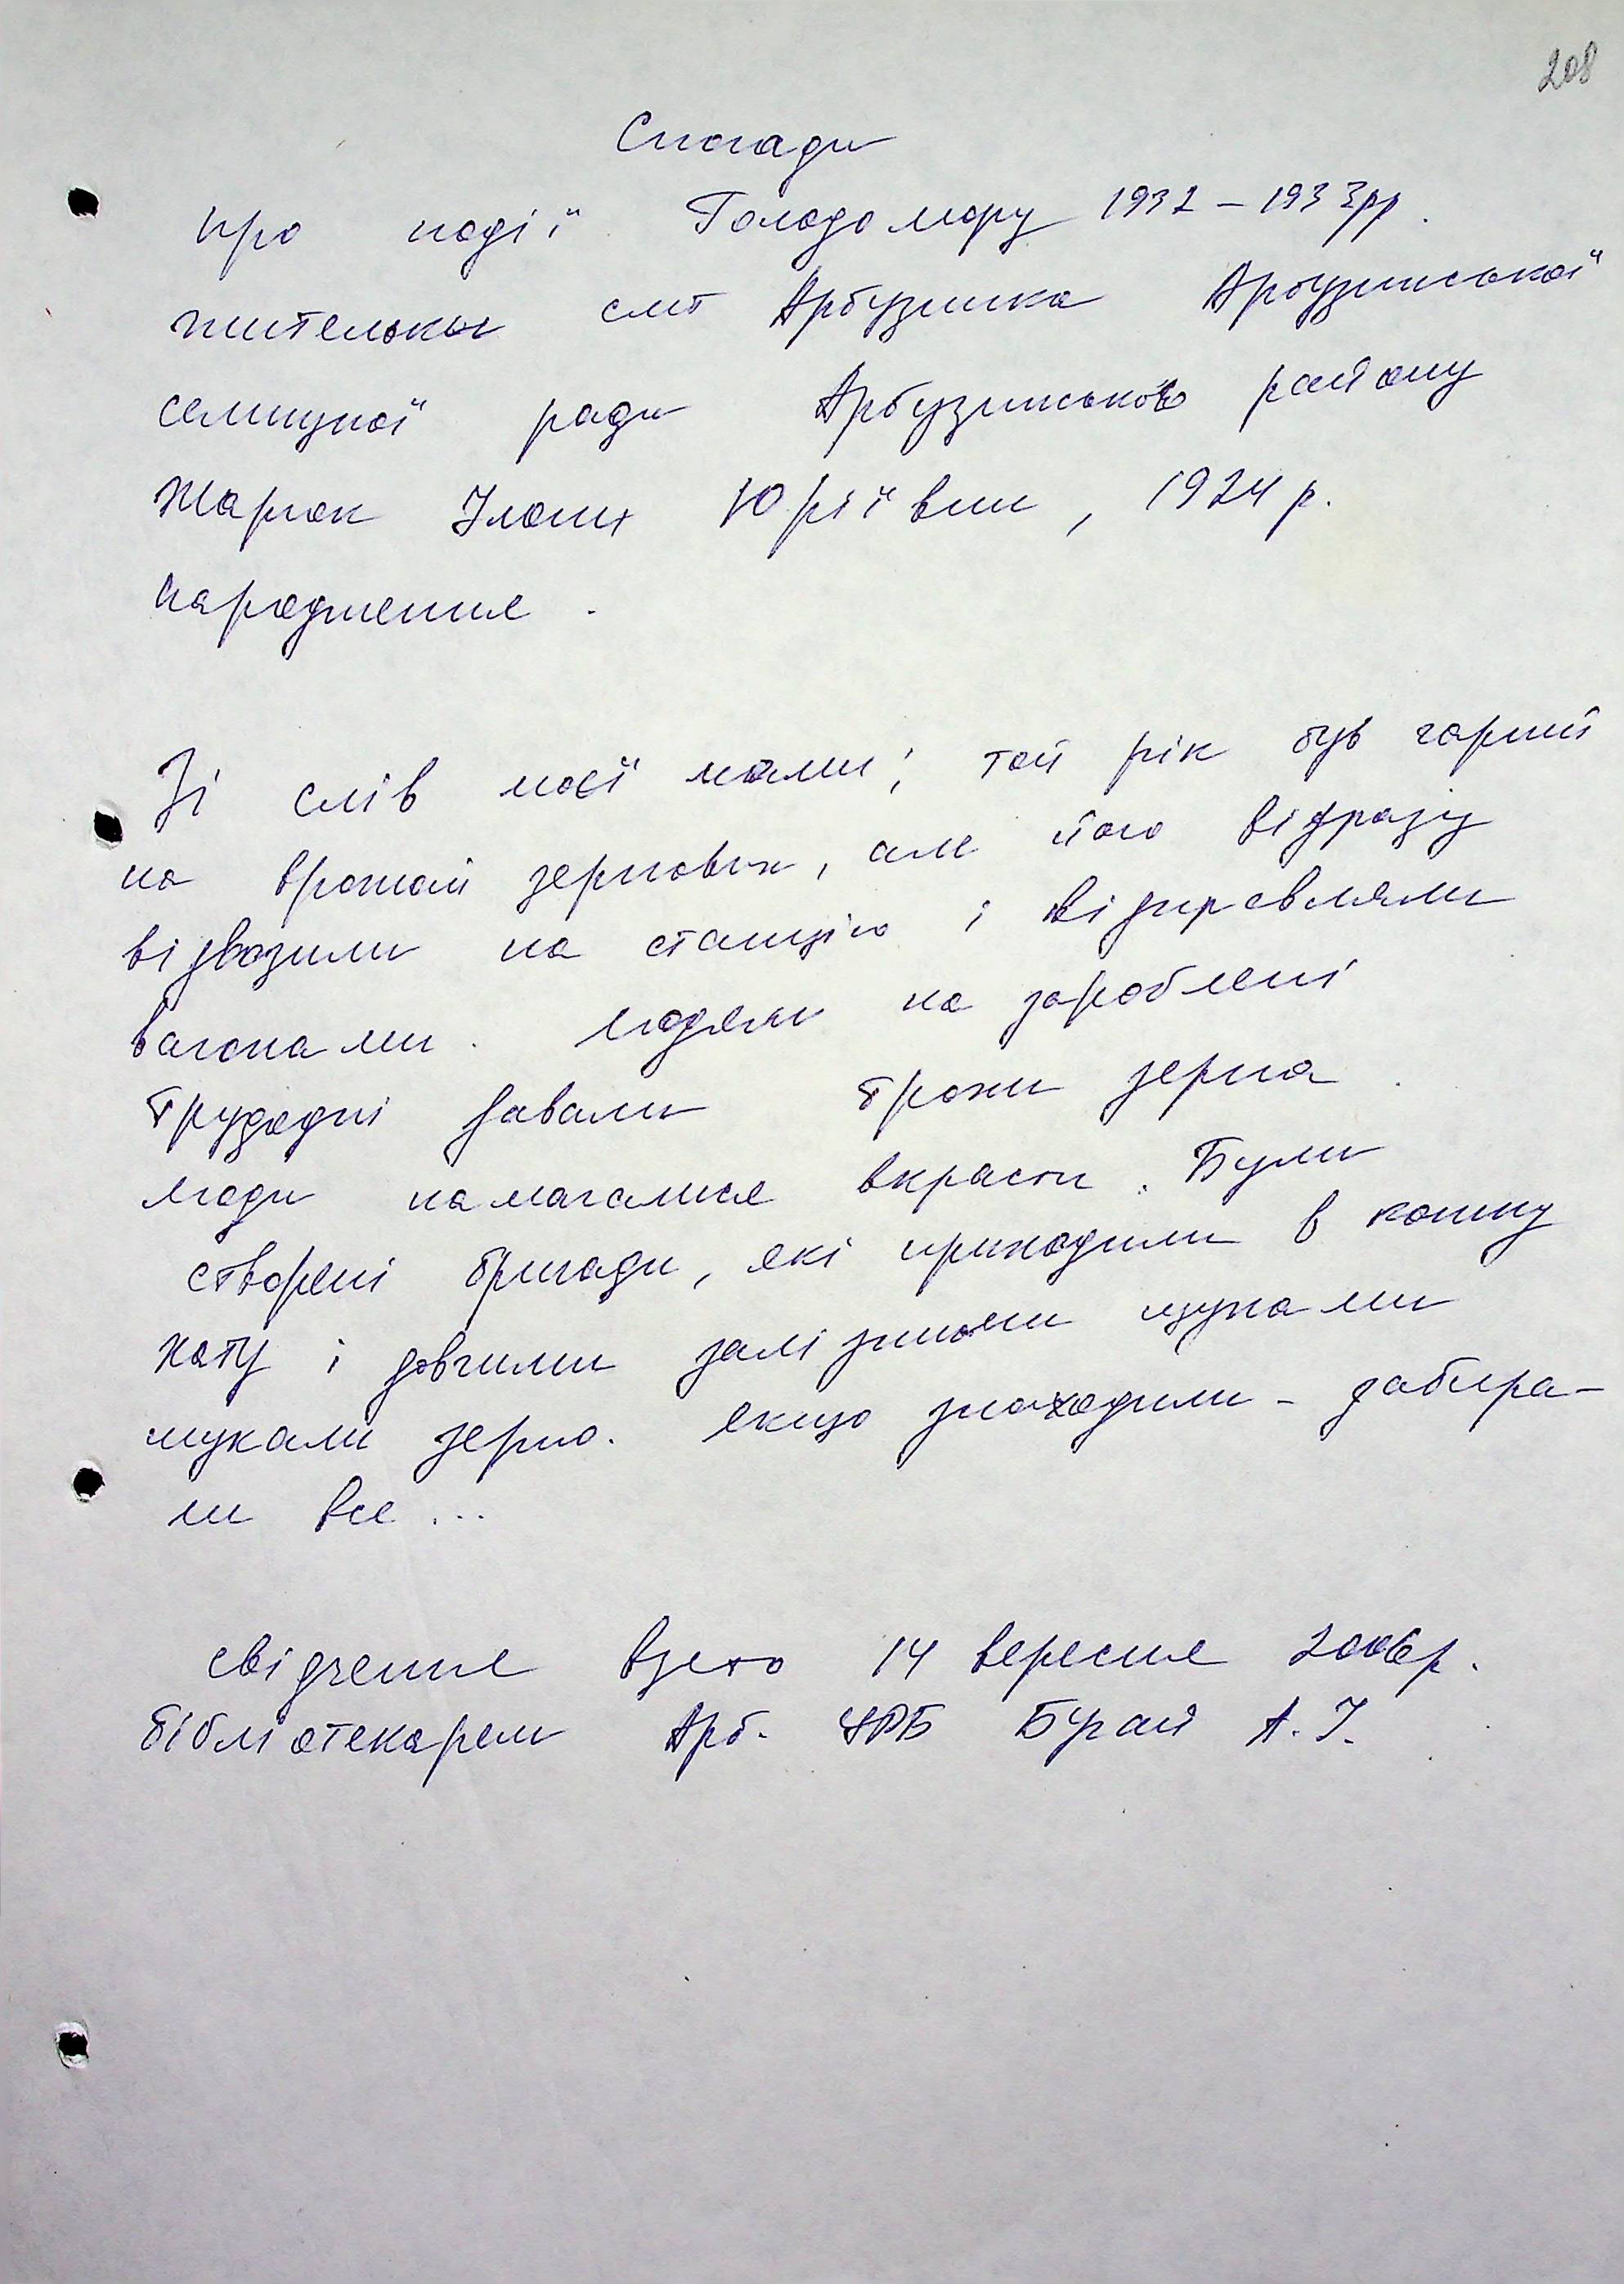 208
Спогади
про події Голодомору 1932-1933рр.
жительки смт Арбузинка Арбузинської
селищної ради Арбузинського району
Юріївни, 1924 р.
народження.
Зі слів моєї мами; той рік був гарний
на врожай зернових, але його відразу
відвозили на станцію і відправляли
вагонами. Людям на зароблені
трудодні давали трохи зерна.
Люди намагалися вкрасти. Були
створені бригади, які приходили в кожну
хату і довгими залізними щупами
шукали зерно. Якщо знаходили - забира-
ли все...
Свідчення взято 14 вересня 2006р.
бібліотекарем Арб. ЦРБ Бугай А.І.